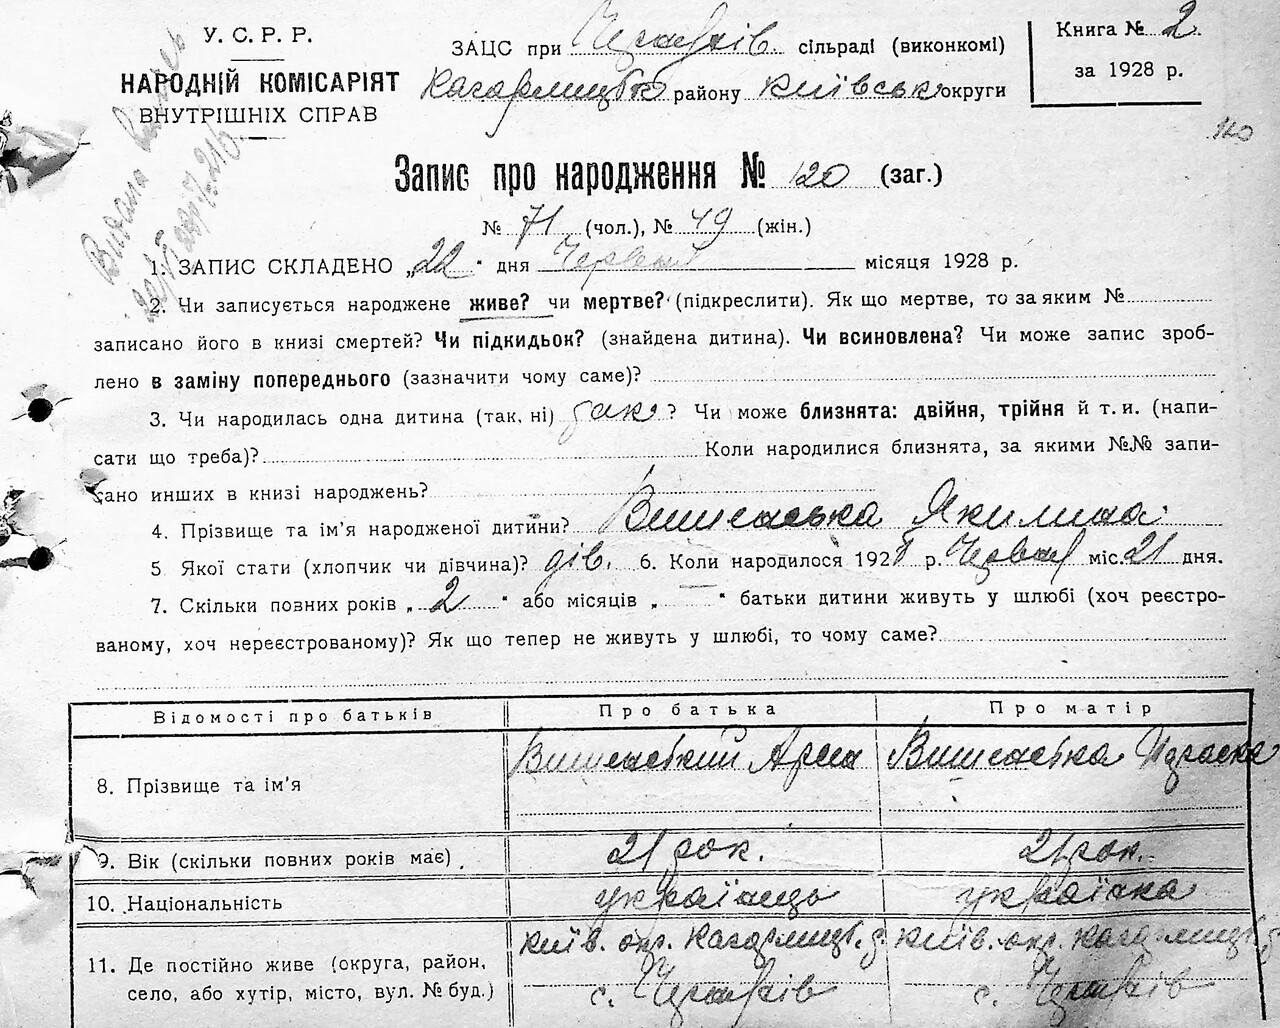 У. С. Р. Р.
НАРОДНІЙ КОМІСАРІЯТ
ВНУТРІШНІХ СПРАВ
ЗАЦС при сільраді (виконкомі)
району Київськ округи
Книга № 2.
за 1928 р.
120
Видана
Запис про народження № 120 (заг.)
№ 71 (чол.), № 49 (жін.)
1. ЗАПИС СКЛАДЕНО „22“ дня Червня місяця 1928 р.
2. Чи записується народжене живе? чи мертве? (підкреслити). Як що мертве, то за яким №
записано його в книзі смертей? Чи підкидьок? (знайдена дитина). Чи всиновлена? Чи може запис зроб-
лено в заміну попереднього (зазначити чому саме)?
3. Чи народилась одна дитина (так, ні) так ? Чи може близнята: двійня, трійня й т. и. (напи-
сати що треба)? Коли народилися близнята, за якими №№ запи-
сано инших в книзі народжень?
4. Прізвище та ім’я народженої дитини? Якилина
5 Якої стати (хлопчик чи дівчина)? дів. 6. Коли народилося 1928 р. Червня міс. 21 дня.
7. Скільки повних років „ 2 “ або місяців „ — “ батьки дитини живуть у шлюбі (хоч реєстро-
ваному, хоч нереєстрованому)? Як що тепер не живуть у шлюбі, то чому саме?
Відомості про батьків Про батька Про матір
8. Прізвище та ім’я
9. Вік (скільки повних років має) 21 рок. 21 рок.
10. Національність українець українка
11. Де постійно живе (округа, район, Київ. окр. Кагарлицьк. Київ. окр. Кагарлицьк.
село, або хутір, місто, вул. № буд.) с. с.